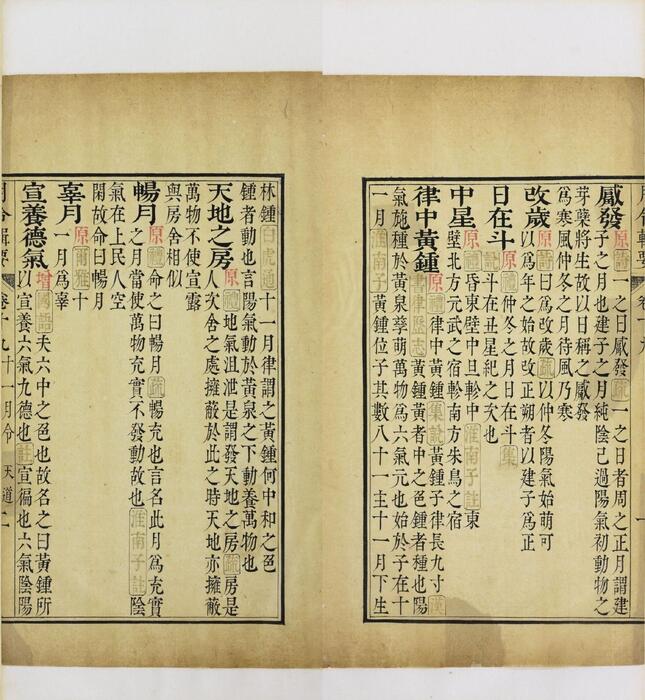 觱發原詩一之日觱發疏一之日者周之正月謂建
子之月也建子之月純陰已過陽氣初動物之
芽孽將生故以日稱之觱發
為寒風仲冬之月待風乃寒
改歲原詩曰為改歲疏以仲冬陽氣始萌可
以為年之始故改正朔者以建子為正
日在斗原禮仲冬之月日在斗集
註斗在丑星紀之次也
中星原禮昏東壁中旦軫中淮南子註東
壁北方元武之宿軫南方朱鳥之宿
律中黃鍾原禮律中黃鍾集說黃鍾子律長九寸漢
書律歷志黃鍾黃者中之色鍾者種也陽
氣施種於黃泉孳萌萬物為六氣元也始於子在十
一月淮南子黃鍾位子其數八十一主十一月下生
林鍾白虎通十一月律謂之黃鍾何中和之色
鍾者動也言陽氣動於黃泉之下動養萬物也
天地之房原禮地氣沮泄是謂發天地之房疏房是
人次舍之處擁蔽於此之時天地亦擁蔽
萬物不使宣露
與房舍相似
暢月原禮命之曰暢月疏暢充也言名此月為充實
之月當使萬物充實不發動故也淮南子註陰
氣在上民人空
閑故命曰暢月
辜月原爾雅十
一月為辜
宣養德氣增國語夫六中之色也故名之曰黃鍾所
以宣養六氣九德也註宣徧也六氣陰陽
月令輯要 卷十九十一月令 天道 二